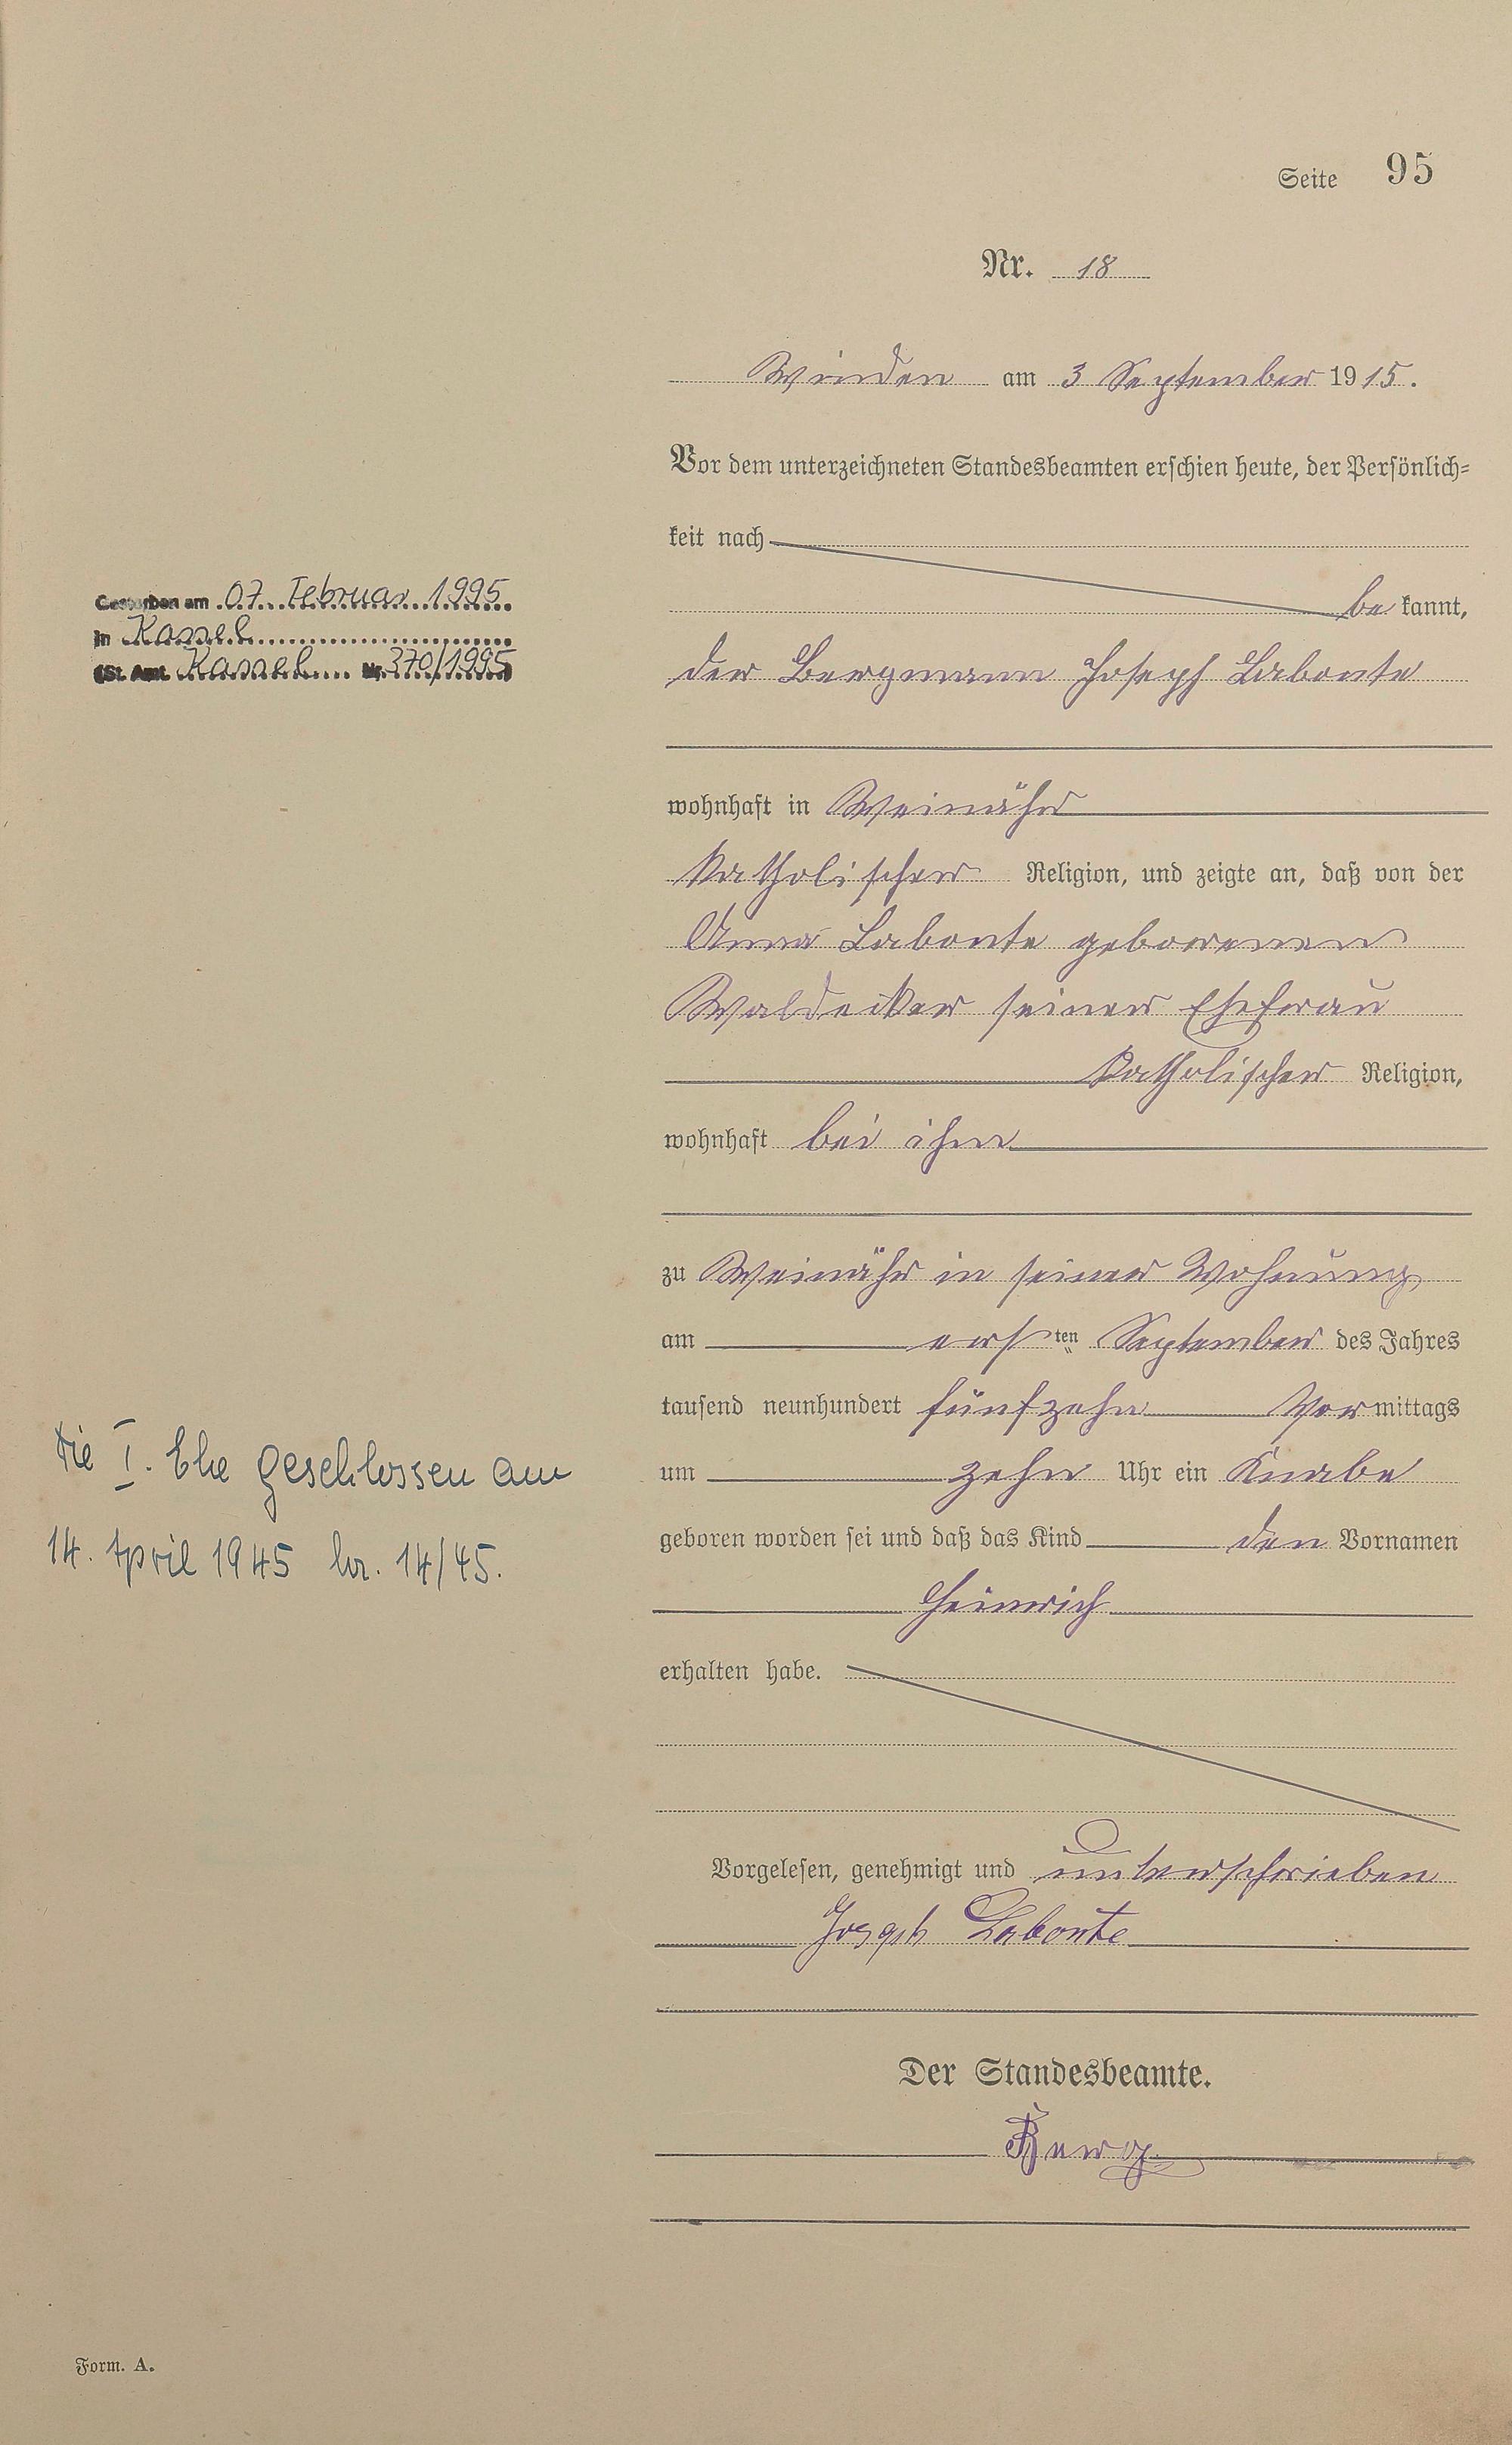 Seite 95
Nr. 18
Winden am 3 September 1915.
Vor dem unterzeichneten Standesbeamten erschien heute, der Persönlich-
keit nach
be kannt,
der Bergmann Joseph Labonte
wohnhaft in Weinähr
katholischer Religion, und zeigte an, daß von der
Anna Labonte geborenen
Waldecker seiner Ehefrau
katholischer Religion,
wohnhaft bei ihm
zu Weinähr in seiner Wohnung,
am ersten September des Jahres
tausend neunhundert fünfzehn Vormittags
um zehn Uhr ein Knabe
geboren worden sei und daß das Kind den Vornamen
Heinrich
erhalten habe.
Vorgelesen, genehmigt und unterschrieben
Joseph Labonte
Der Standesbeamte.
Gestorben am 07. Februar 1995
in Kassel
(St. Amt Kassel Nr. 370/1995)
Die I. Ehe geschlossen am
14. April 1945 Nr. 14/45.
Form. A.